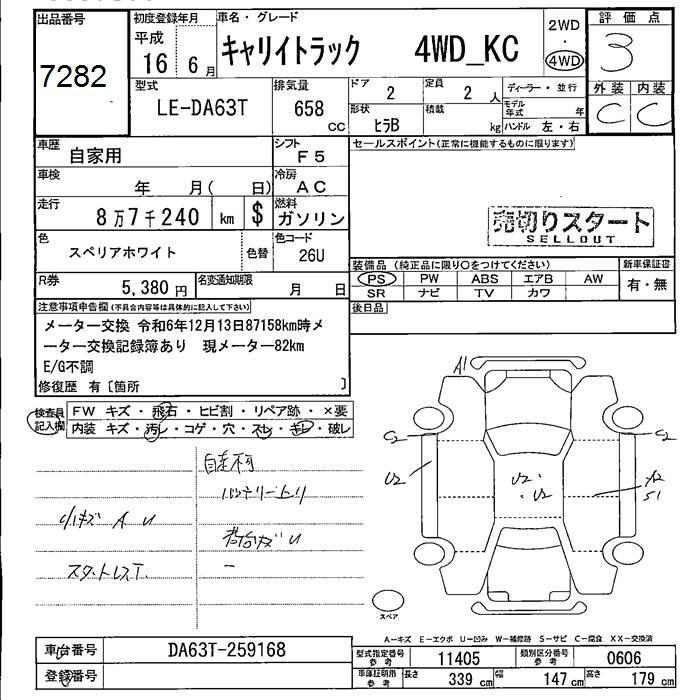 出品番号
7282
初度登録年月
平成
16 6月
車名・グレード
キャリイトラック 4WD_KC
2WD
・
4WD
評価点
3
外装 内装
C C
型式
LE-DA63T
排気量
658
CC
ドア
2
定員
2 人
ディーラー・並行
モデル年式 年
形状
ヒラB
積載
kg
ハンドル 左・右
車歴
自家用
シフト
F5
セールスポイント(正常に機能するものに限ります)
車検
年 月( 日)
冷房
AC
走行
8万7千240 km $
燃料
ガソリン
売切りスタート
SELLOUT
色
スペリアホワイト
色替
色コード
26U
R券
5,380 円
名変通知期限
月 日
装備品 (純正品に限り○をつけてください)
新車保証書
PS PW ABS エアB AW
有・無
SR ナビ TV カワ
後日品
注意事項申告欄(不具合内容等は具体的に記入して下さい)
メーター交換 令和6年12月13日87158km時メ
ーター交換記録簿あり 現メーター82km
E/G不調
修復歴 有〔箇所 〕
検査員記入欄
FW キズ・飛石・ヒビ割・リペア跡・×要
内装 キズ・汚レ・コゲ・穴・スレ・キレ・破レ
自走不可
バッテリー上り
小キズ A U
荷台サビ U
スタートレスT.
-
A1
C2 C2
U2 U2 U2 A2
S1
スペア
A-キズ E-エクボ U-凹み W-補修跡 S-サビ C-腐食 XX-交換済
車台番号
DA63T-259168
登録番号
型式指定番号 参考
11405
類別区分番号 参考
0606
車庫証明用 参考
長さ 339 cm 幅 147 cm 高さ 179 cm